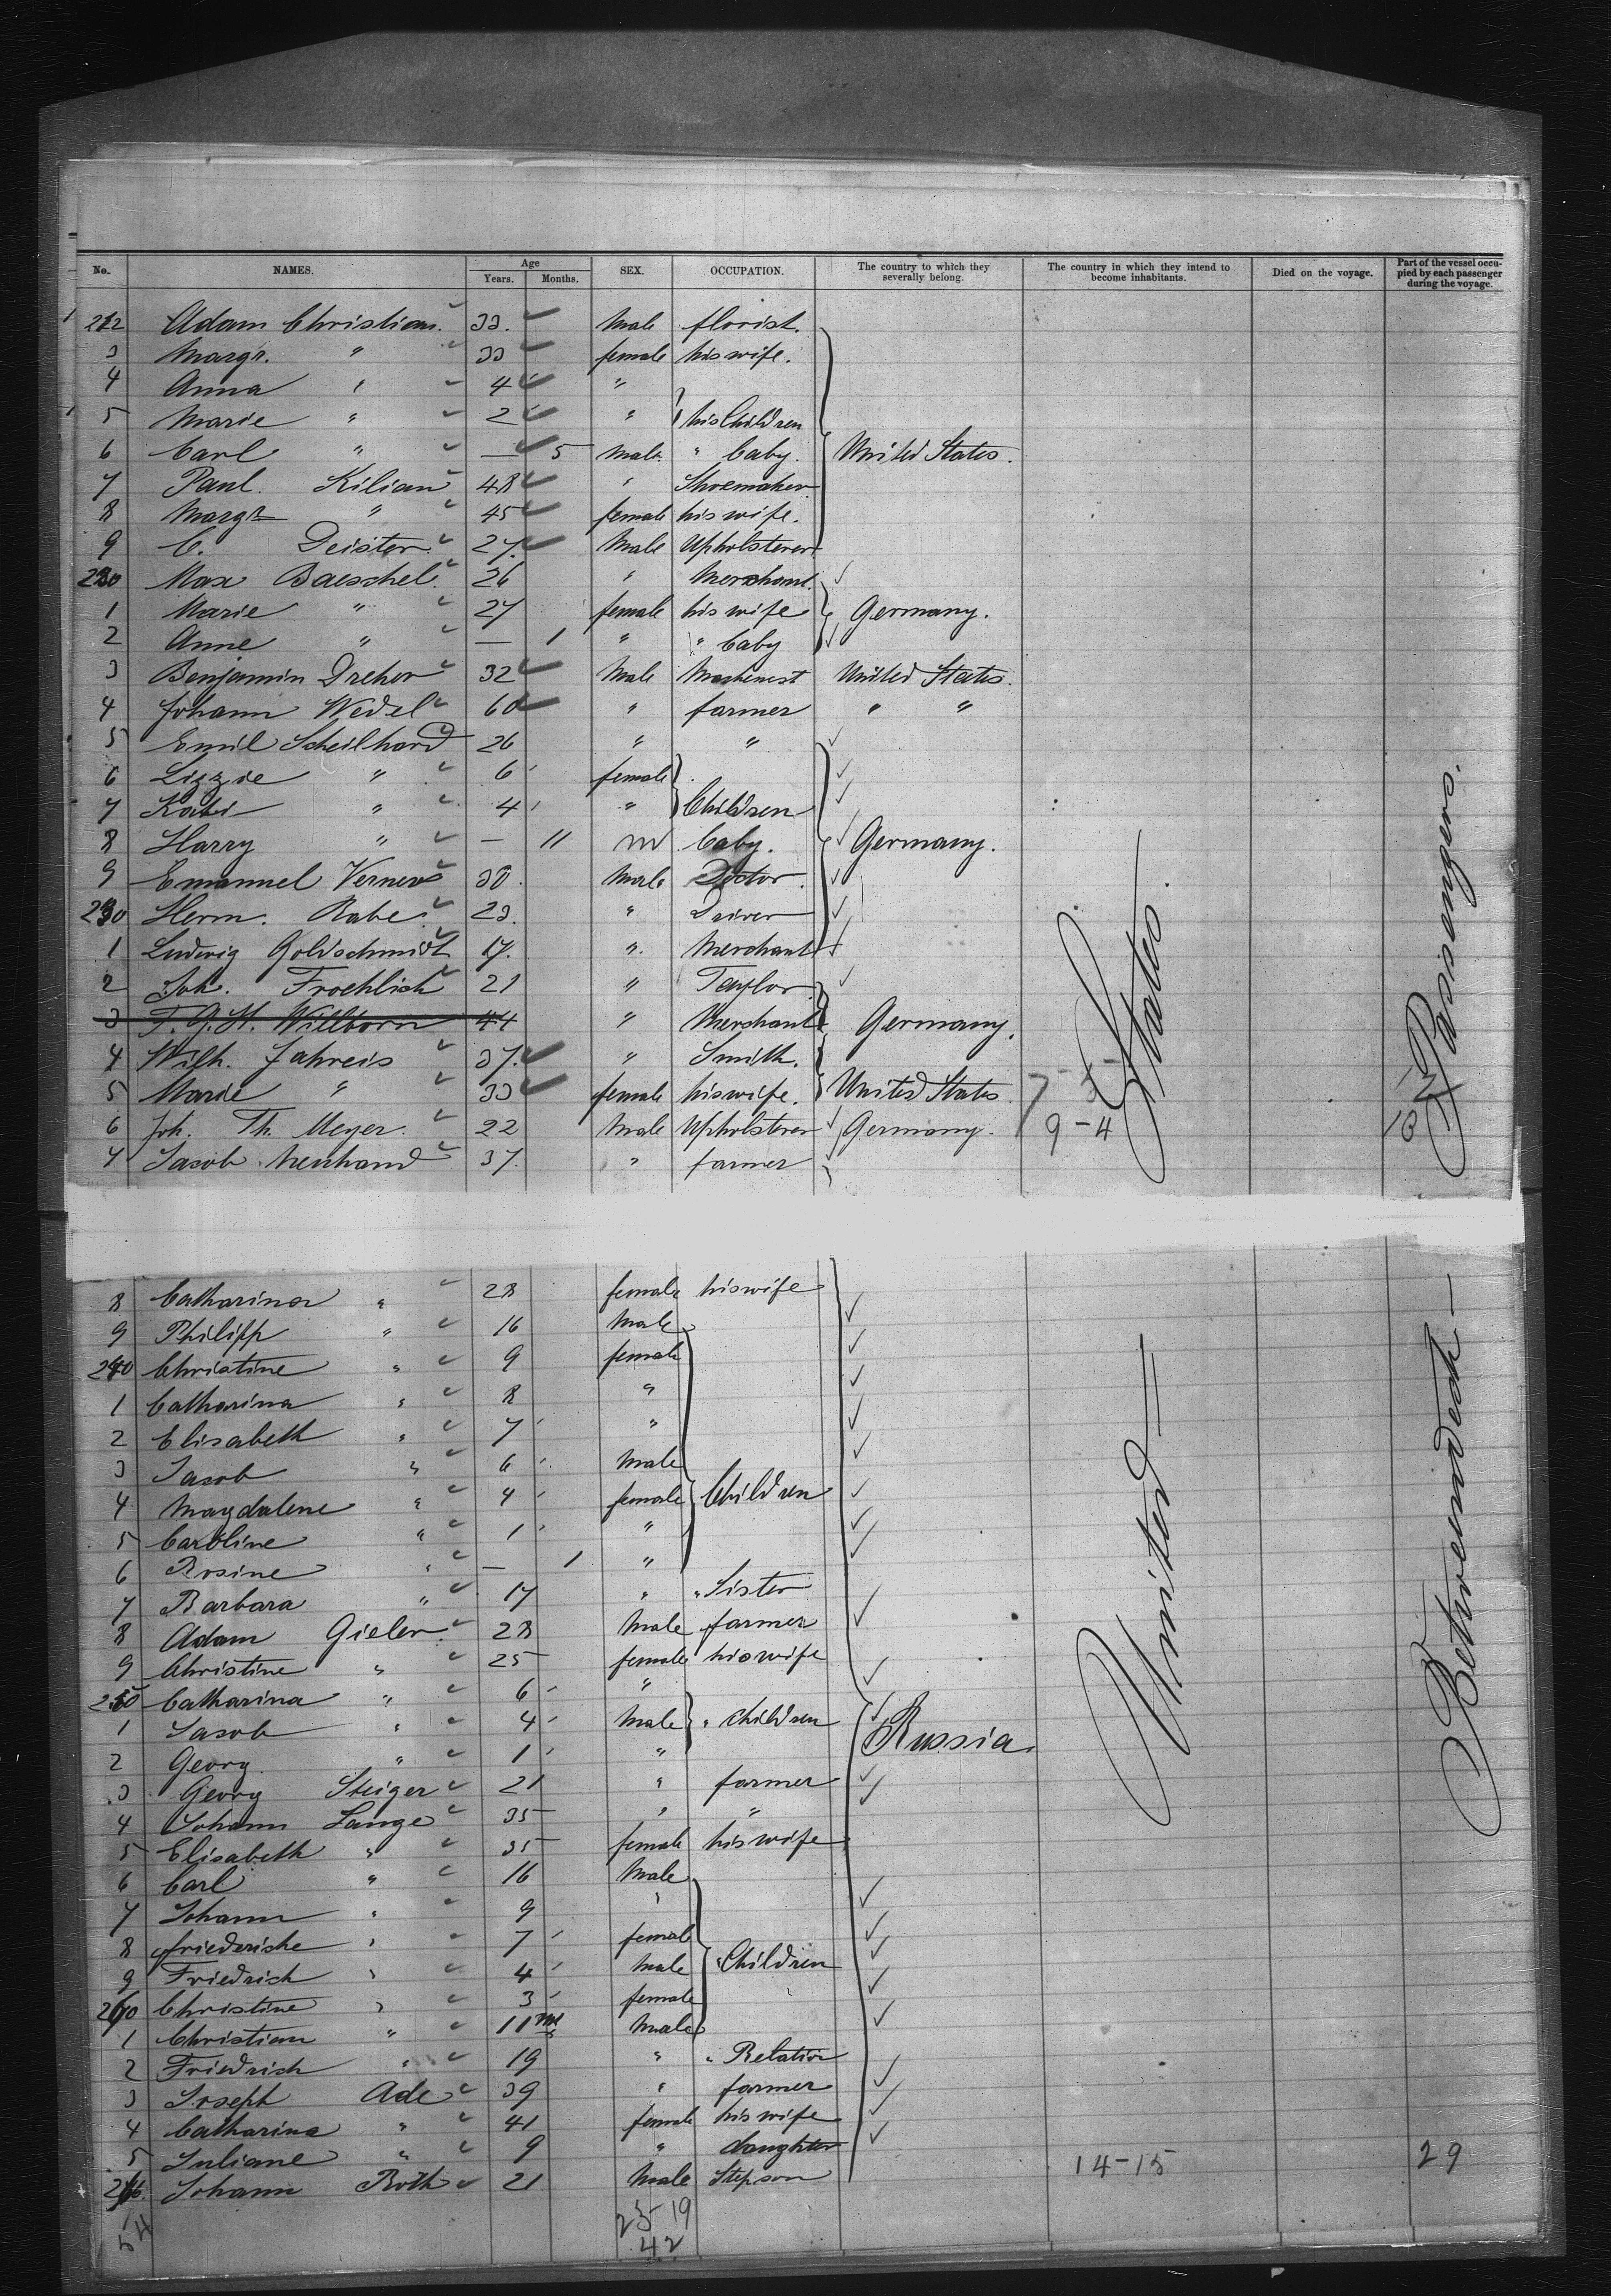 No. NAMES. Age Years. Months. SEX. OCCUPATION. The country to which they severally belong. The country in which they intend to become inhabitants. Died on the voyage. Part of the vessel occupied by each passenger during the voyage.
212 Adam Christian. 33. Male florist.
3 Margr. " 33 female his wife.
4 Anna " 4 "
5 Marie " 2 " his Children
6 Carl " — 5 Male " baby. United States.
7 Paul. Kilian 48 " Shoemaker
8 Margr. " 45 female his wife.
9 C. Deister 27. Male Upholsterer
Max Baeschel 26 " Merchant.
1 Marie " 27 female his wife Germany.
2 Anne " — 1 " " baby
3 Benjamin Dreher 32 Male Mashenest United States.
4 Johann Wedel 60 " farmer " "
5 Emil Scheilhard 26 " "
6 Lizzie " 6 female
7 Kati " 4 " Children
8 Harry " — 11 m baby. Germany.
9 Emanuel 38. Male Doctor.
230 Herm. Rabe 23. " Driver
1 Ludwig Goldschmidt 17. " Merchant
2 Joh. Froehlich 21 " Taylor
3 F. G. H. Willborn 44 " Merchant Germany.
4 Wilh. Jahreis 37. " Smith.
5 Marie " 33 female his wife. United States 7-5-
6 Joh. Th. Meyer. 22 Male Upholsterer Germany. 9-4
7 Jacob Neuhand 37. " farmer
8 Catharina " 28 female his wife
9 Philipp " 16 Male
240 Christine " 9 female
1 Catharina " 8 "
2 Elisabeth " 7 "
3 Jacob " 6 Male
4 Magdalene " 4 female Children
5 Caroline " 1 "
6 Rosine " — 1 "
7 Barbara " 17 " " Sister
8 Adam Gieler. 28 Male farmer
9 Christine " 25 female his wife
250 Catharina " 6 "
1 Jacob " 4 Male " children Russia.
2 Georg. " 1 "
3 Georg Steiger 21 " farmer
4 Johann Lange 35 " "
5 Elisabeth " 35 female his wife
6 Carl " 16 Male
7 Johann " 9 "
8 Friederiche " 7 female
9 Friedrich " 4 Male " Children
260 Christine " 3 female
1 Christian " 11 ms Male
2 Friedrich " 19 " " Relation
3 Joseph Ade 39 " farmer
4 Catharina " 41 female his wife
5 Juliane " 9 " daughter 14-15 29
266. Johann Roth 21 Male Stepson
54 23 19
42
United States.
Betweendeck Passangers.